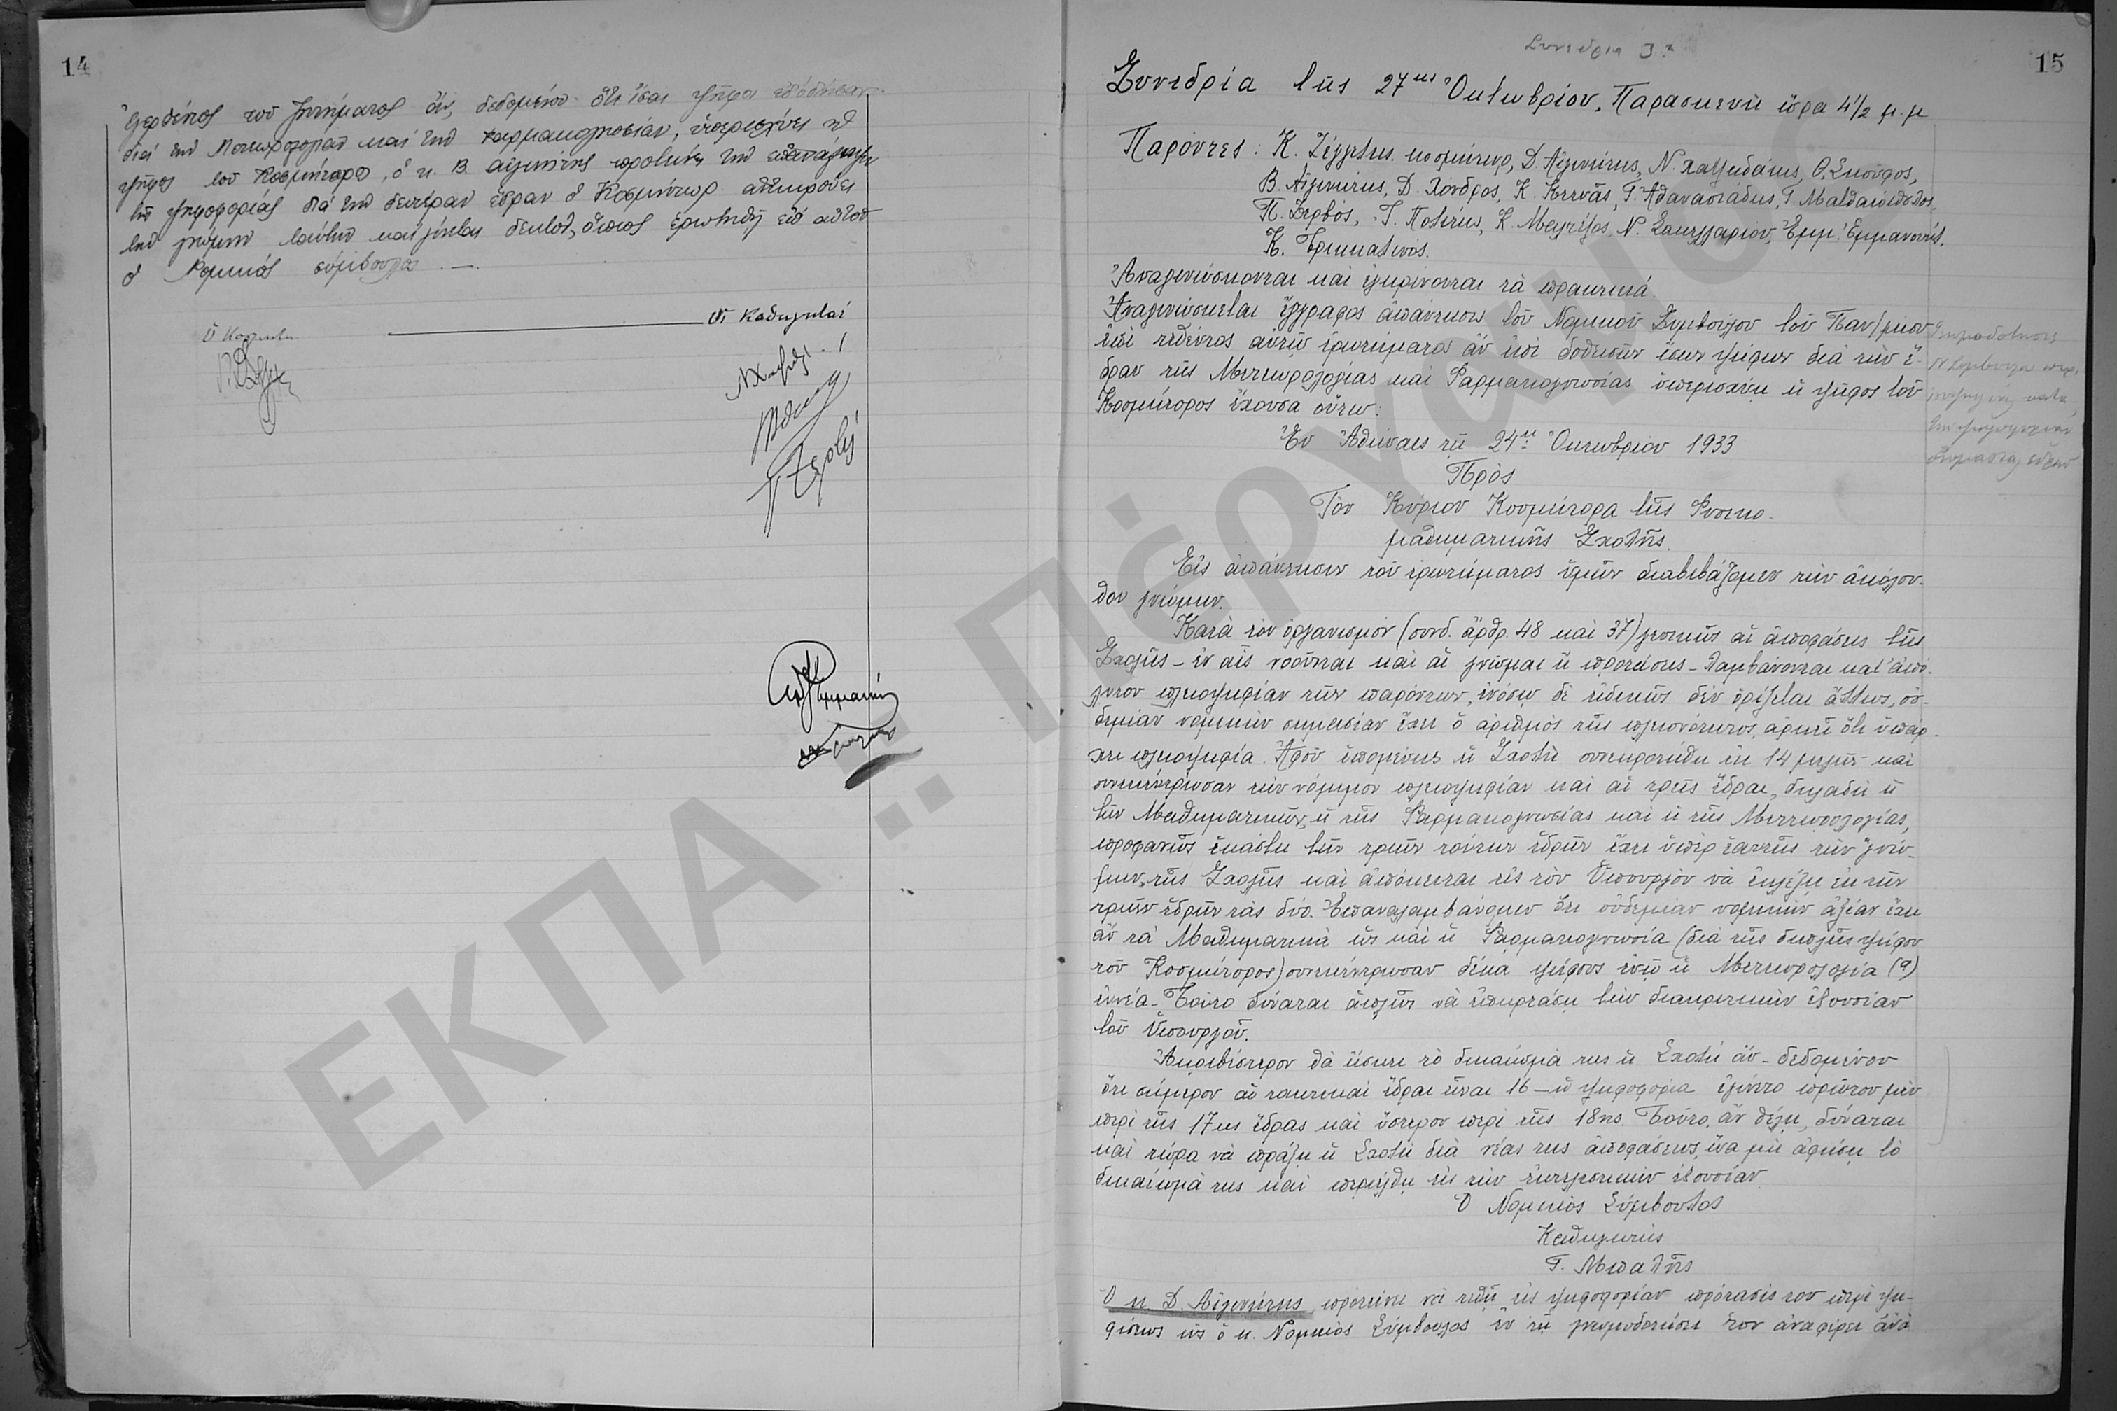 14
τοῦ ζητήματος ἄν, δεδομένου ὅτι ἴσαι ψῆφοι ἐδόθησαν
διά τήν Μετεωρολογίαν καί τήν Φαρμακογνωσίαν, ὑπερισχύει ἡ
ψῆφος τοῦ Κοσμήτορος, ὁ κ. Β. Αἰγινήτης προτείνει τήν ἐπανάληψιν
τῆς ψηφοφορίας διά τήν δευτέραν ἕδραν ὁ Κοσμήτωρ
τήν γνώμην ταύτην καί γίνεται δεκτόν, ὅπως ἐρωτηθῇ ἐπί αὐτοῦ
ὁ Νομικός σύμβουλος. —
Ὁ Κοσμήτωρ
Οἱ Καθηγηταί
Συνεδρία 3η
15
Συνεδρία τῆς 27ης Ὀκτωβρίου, Παρασκευή ὥρα 4 1/2 μ.μ
Παρόντες: Κ. Ζέγγελης κοσμήτωρ, Δ. Αἰγινήτης, Ν. Χατζιδάκις, Θ. Σκοῦφος,
Β. Αἰγινήτης, Δ. Χόνδρος, Κ. Κτενᾶς, Γ. Ἀθανασιάδης, Γ. Ματθαιόπουλος
Π. Ζερβός, Ἰ. Πολίτης, Κ. Μαλτέζος, Ν. Σακελλαρίου, Ἐμμ. Ἐμμανουήλ.
Κ. Βέρας
Ἀναγινώσκονται καί ἐγκρίνονται τά πρακτικά
Ἀναγινώσκεται ἔγγραφος ἀπάντησις τοῦ Νομικοῦ Συμβούλου τοῦ Παν/μίου
ἐπί τεθέντος αὐτῷ ἐρωτήματος ἄν ἐπί δοθεισῶν ἴσων ψήφων διά τήν ἕ-
δραν τῆς Μετεωρολογίας καί Φαρμακογνωσίας ὑπερισχύει ἡ ψῆφος τοῦ
Κοσμήτορος ἔχουσα οὕτω:
Ἐν Ἀθήναις τῇ 24ῃ Ὀκτωβρίου 1933
Πρός
Τόν Κύριον Κοσμήτορα τῆς Φυσικο-
μαθηματικῆς Σχολῆς.
Εἰς ἀπάντησιν τοῦ ἐρωτήματος ὑμῶν διαβιβάζομεν τήν ἀκόλου-
θον γνώμην.
Κατά τόν ὀργανισμόν (συνδ. ἄρθρ. 48 καί 37) γενικῶς αἱ ἀποφάσεις τῆς
Σχολῆς – ἐν αἷς νοοῦνται καί αἱ γνῶμαι ἤ προτάσεις – λαμβάνονται κατ' ἀπό-
λυτον πλειοψηφίαν τῶν παρόντων, ἐνόσῳ δέ εἰδικῶς δέν ὁρίζεται ἄλλως, οὐ-
δεμίαν νομικήν σημασίαν ἔχει ὁ ἀριθμός τῆς πλειονότητος, ἀρκεῖ ὅτι ὑπάρ-
χει πλειοψηφία. Ἀφοῦ ἑπομένως ἡ Σχολή συνεκροτήθη ἐκ 14 μελῶν καί
συνεκέντρωσαν τήν νόμιμον πλειοψηφίαν καί αἱ τρεῖς ἕδραι, δηλαδή ἡ
τῶν Μαθηματικῶν, ἡ τῆς Φαρμακογνωσίας καί ἡ τῆς Μετεωρολογίας,
προφανῶς ἑκάστη τῶν τριῶν τούτων ἑδρῶν ἔχει ὑπέρ ἑαυτῆς τήν γνώ-
μην τῆς Σχολῆς καί ἀπόκειται εἰς τόν Ὑπουργόν νά ἐκλέξῃ ἐκ τῶν
τριῶν ἑδρῶν τάς δύο. Ἐπαναλαμβάνομεν ὅτι οὐδεμίαν νομικήν ἀξίαν ἔχει
ἄν τά Μαθηματικά ὡς καί ἡ Φαρμακογνωσία (διά τῆς διπλῆς ψήφου
τοῦ Κοσμήτορος) συνεκέντρωσαν δέκα ψήφους ἐνῷ ἡ Μετεωρολογία (9)
ἐννέα. Τοῦτο δύναται ἁπλῶς νά ἐπηρεάσῃ τήν διακριτικήν ἐξουσίαν
τοῦ Ὑπουργοῦ.
Ἀκριβέστερον θά ἤσκει τό δικαίωμά της ἡ Σχολή ἄν – δεδομένου
ὅτι σήμερον αἱ τακτικαί ἕδραι εἶναι 16 – ἡ ψηφοφορία ἐγίνετο πρῶτον μέν
περί τῆς 17ης ἕδρας καί ὕστερον περί τῆς 18ης. Τοῦτο, ἄν θέλῃ, δύναται
καί τώρα νά πράξῃ ἡ Σχολή διά νέας της ἀποφάσεως, ἵνα μή ἀφήσῃ τό
δικαίωμά της καί περιέλθῃ εἰς τήν ἐκτελεστικήν ἐξουσίαν.
Ὁ Νομικός Σύμβουλος
Καθηγητής
Γ. Μπαλῆς
Ὁ κ. Δ Αἰγινήτης προτείνει νά τεθῇ εἰς ψηφοφορίαν πρότασίς του περί ψη-
φίσεως ὡς ὁ κ. Νομικός Σύμβουλος ἐν τῇ γνωμοδοτήσει του ἀναφέρει ἀνά
Γνωμοδότησις
Ν. Συμβούλου περί
ΕΚΠΑ :: Πέργαμος